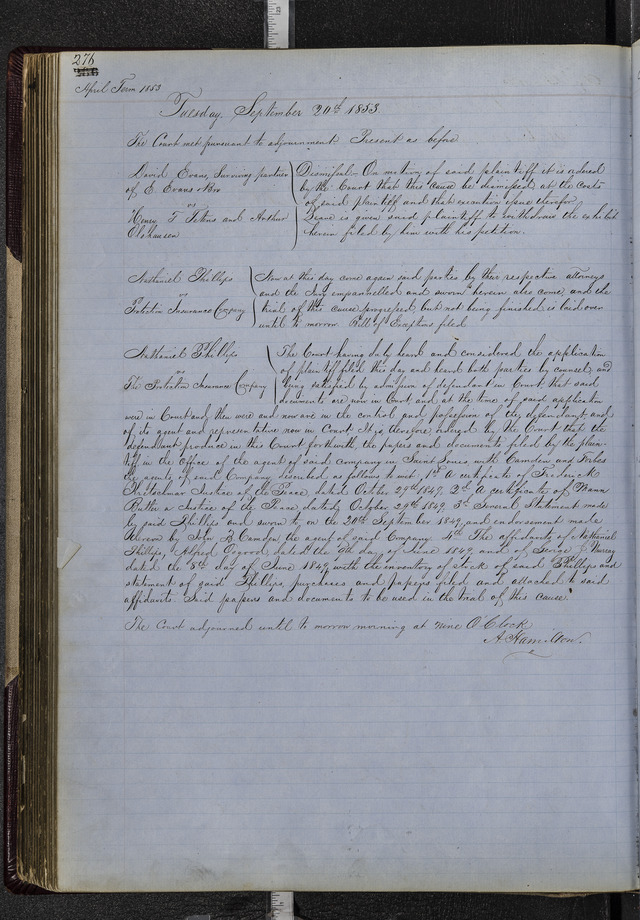 276
April Term 1853
Tuesday, September 20th 1853.
The Court met pursuant to adjournment Present as before
David Evans, Surviving partner
of E. Evans & Bro
vs
Henry T. and Arthur
Olshausen
Dismissal- On motion of said plaintiff it is ordered
by the Court that this cause be dismissed at the costs
of said plaintiff and that execution issue therefor
Leave is given said plaintiff to withdraw the exhibit
herein filed by him with his petition.
Nathaniel Phillips
vs
Protection Insurance Company
Now at this day come again said parties by their respective attorneys
and the Jury empannelled and sworn herein also come and the
trial of this cause progressed, but not being finished is laid over
until to morrow Bill of Exceptions filed
Nathaniel Phillips
vs
The Protection Insurance Company
The Court having duly heard and considered the application
of plaintiff filed this day and heard both parties by counsel, and
being satisfied by admission of defendant in Court, that said
documents are now in Court and at the time of said application
were in Court and then were and now are in the control and possession of the defendant, and
of its agent and representative now in Court It is therefore ordered by the Court that the
defendant produce in this Court forthwith, the papers and documents filed by the plain-
tiff in the Office of the agent of said Company in Saint Louis with Camden and
the agents of said Company described as follows to wit, 1st A certificate of Frederick
Justice of the Peace dated October 29th 1849, 2nd A certificate of Mann
Butler a Justice of the Peace dated October 29th 1849, 3d Several Statements made
by said Phillips and sworn to on the 20th September 1849 and endorsement made
thereon by John B Camden the agent of said Company 4th The affidavits of Nathaniel
Phillips, Alfred Osgood dated the day of June 1849 and of George J Murray
dated the 8th day of June 1849 with the inventory of stock of said Phillips and
statement of said Phillips, purchases and papers filed and attached to said
affidavits. Said papers and documents to be used in the trial of this cause.
The Court adjourned until to morrow morning at nine O Clock
A. Hamilton.